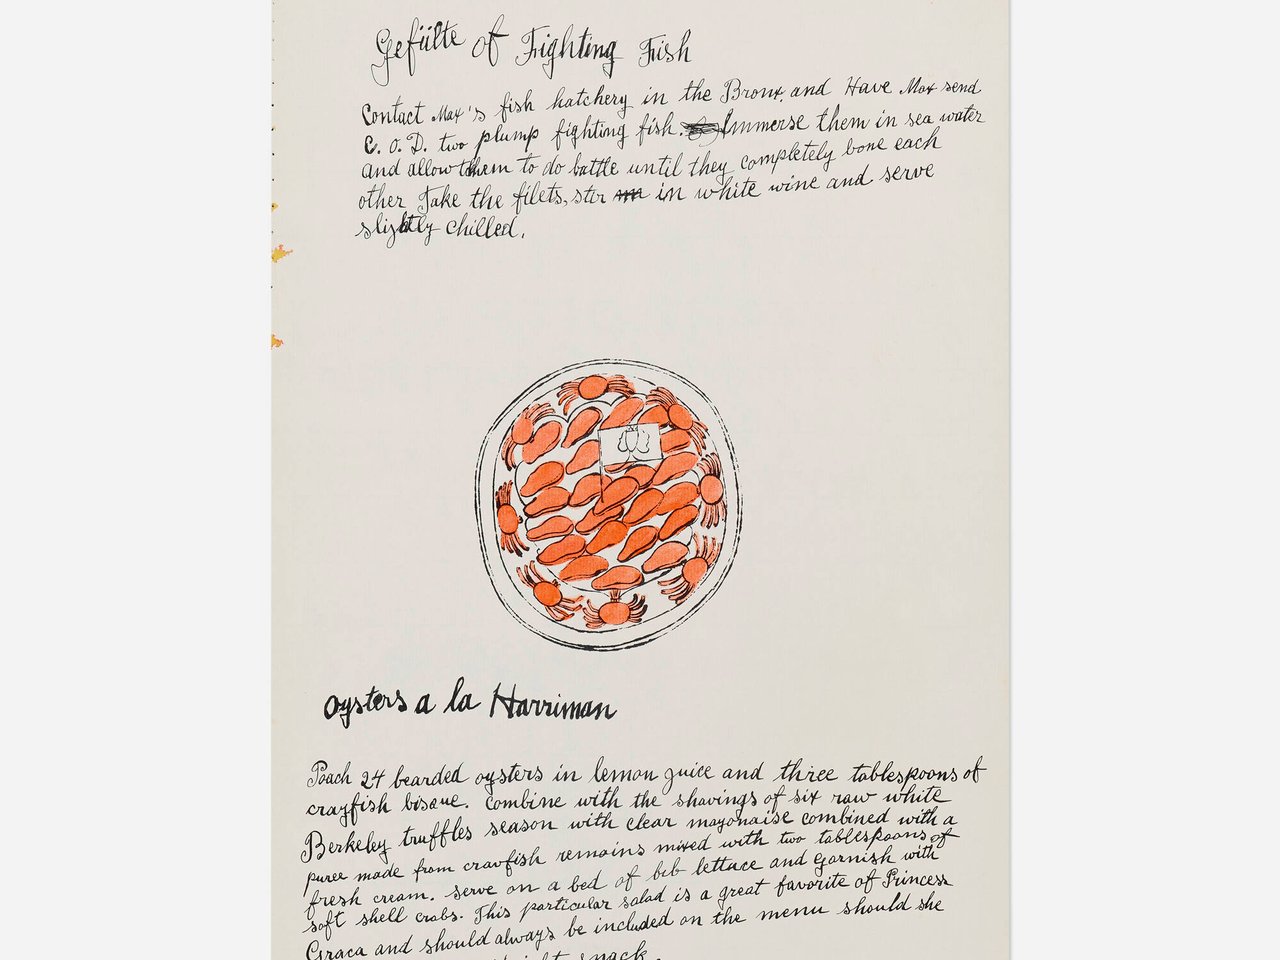 Gefülte of Fighting Fish
Contact Max's fish hatchery in the Bronx, and Have Max send
C. O. D. two plump fighting fish. Immerse them in sea water
and allow them to do battle until they completely bone each
other Take the filets, stir in white wine and serve
slightly chilled.
oysters a la Harriman
Poach 24 bearded oysters in lemon juice and three tablespoons of
crayfish bisque. combine with the shavings of six raw white
Berkeley truffles season with clear mayonaise combined with a
puree made from crayfish remains mixed with two tablespoons of
fresh cream. serve on a bed of bib lettuce and garnish with
soft shell crabs. This particular salad is a great favorite of Princess
Graca and should always be included on the menu should she
snack.